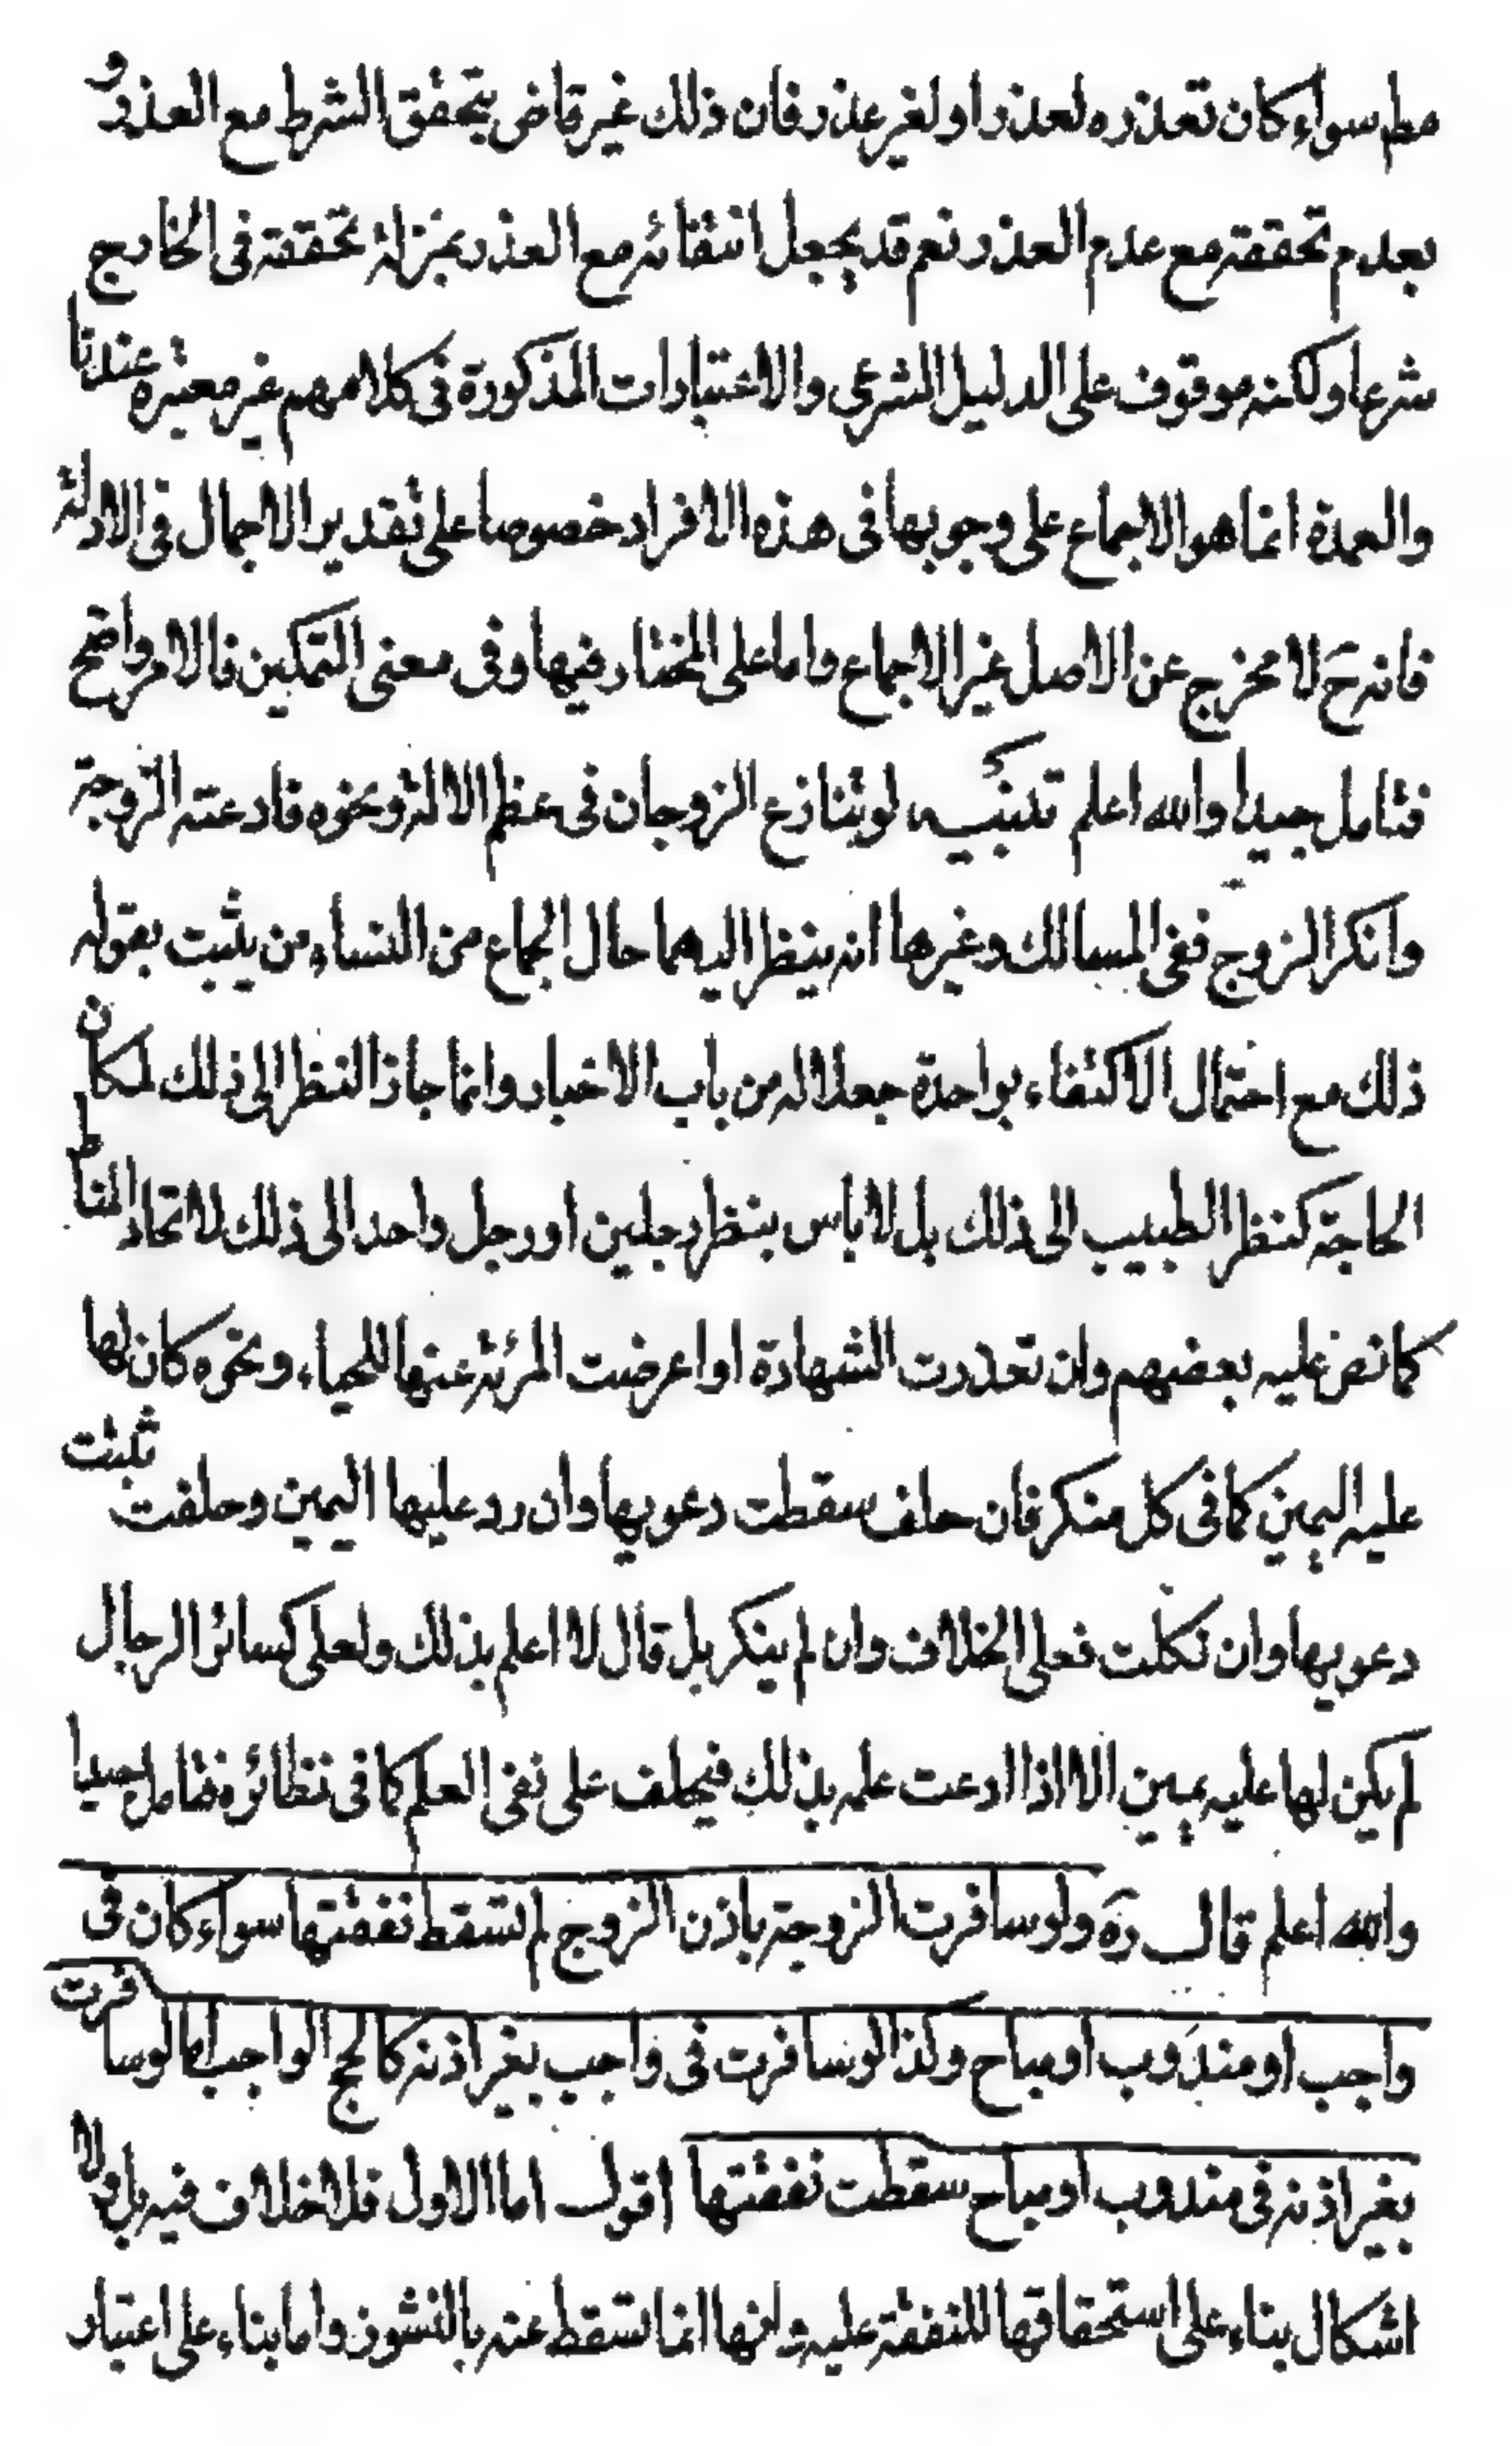 مط سواء كان تعذره لعذر او لغير عذر فان ذلك غير قاض بتحقق الشرط مع العذر و
بعدم تحققه مع عدم العذر نعم قد يجعل انتفائه مع العذر بمنزلة تحققه فى الخارج
شرعا ولكنه موقوف على الدليل الشرعى والاعتبارات المذكورة فى كلامهم غير معتبرة عندنا
والعمدة انما هو الاجماع على وجوبها فى هذه الافراد خصوصا على تقدير الاجمال فى الادلة
فانه ح لا مخرج عن الاصل غير الاجماع واما على المختار فيها وفى معنى التمكين فالامر واضح
فتامل جيدا والله اعلم تنبيه لو تنازع الزوجان فى عظم الالة ونحوه فادعته الزوجة
وانكر الزوج ففى المسالك وغيرها انه ينظر اليهما حال الجماع من النساء من يثبت بقوله
ذلك مع احتمال الاكتفاء بواحدة جعلا له من باب الاخبار وانما جاز النظر الى ذلك لمكان
الحاجة كنظر الطبيب الى ذلك بل لا باس بنظر رجلين او رجل واحد الى ذلك لاتحاد المناط
كما نص عليه بعضهم وان تعذرت الشهادة او اعرضت المرئة عنها للحياء ونحوه كان لها
عليه اليمين كما فى كل منكر فان حلف سقطت دعويها وان رد عليها اليمين وحلفت ثبتت
دعويها وان نكلت فعلى الخلاف وان لم ينكر بل قال لا اعلم بذلك ولعلى كسائر الرجال
لم يكن لها عليه يمين الا اذا ادعت علمه بذلك فيحلف على نفى العلم كما فى نظائره فتامل جيدا
والله اعلم قال ره ولو سافرت الزوجة باذن الزوج لم تسقط نفقتها سواء كان فى
واجب او مندوب او مباح وكذا لو سافرت فى واجب بغير اذنه كالحج الواجب اما لو سافرت
بغير اذنه فى مندوب او مباح سقطت نفقتها اقول اما الاول فلا خلاف فيه بل ولا
اشكال بناء على استحقاقها للنفقة عليه وانها انما تسقط عنه بالنشوز واما بناء على اعتبار